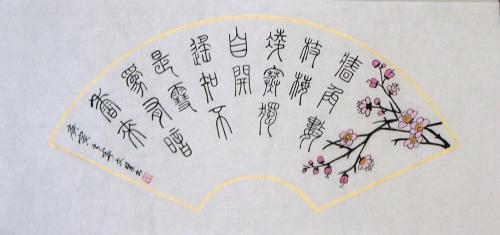 牆角數
枝梅
凌寒獨
自開
遥知不
是雪
為有暗
香來
庚寅